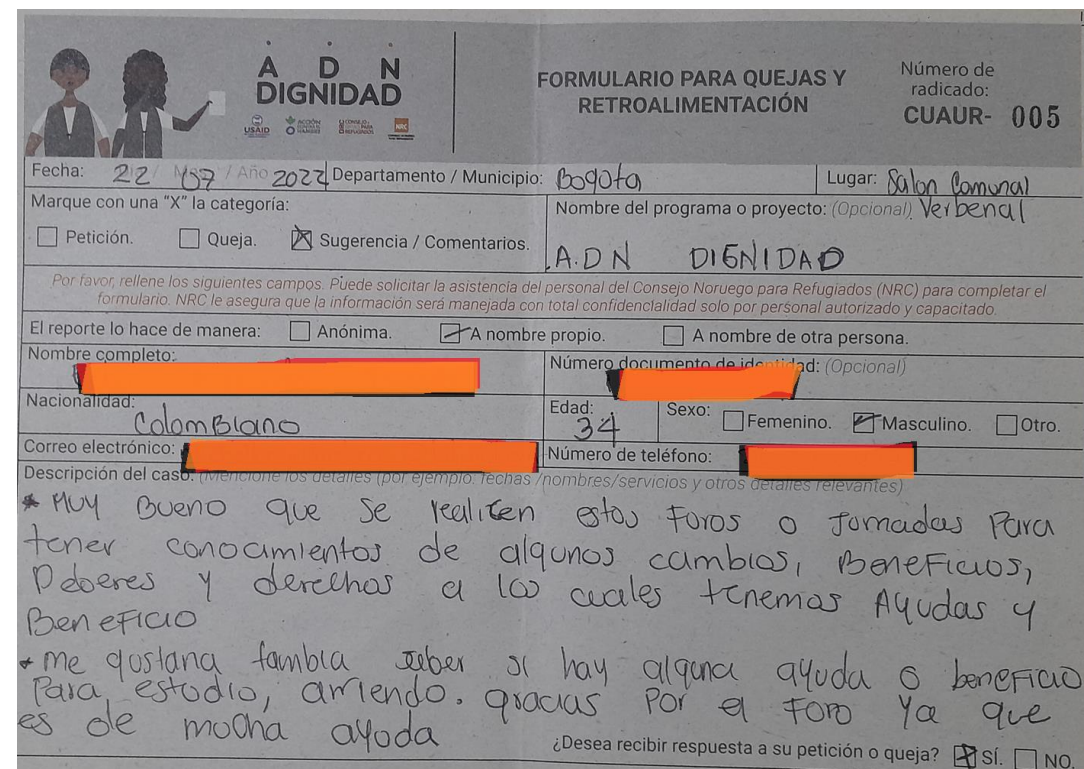 A D N
DIGNIDAD
USAID
ACCIÓN CONTRA EL HAMBRE
NRC
FORMULARIO PARA QUEJAS Y
RETROALIMENTACIÓN
Número de
radicado:
CUAUR- 005
Fecha: 22 / 07 / Año 2022 Departamento / Municipio: Bogota Lugar: Salon Comunal
Verbenal
Marque con una "X" la categoría:
Nombre del programa o proyecto: (Opcional)
Petición. Queja. Sugerencia / Comentarios.
A.D N DIGNIDAD
Por favor, rellene los siguientes campos. Puede solicitar la asistencia del personal del Consejo Noruego para Refugiados (NRC) para completar el
formulario. NRC le asegura que la información será manejada con total confidencialidad solo por personal autorizado y capacitado.
El reporte lo hace de manera: Anónima. A nombre propio. A nombre de otra persona.
Nombre completo:
Número documento de identidad: (Opcional)
Nacionalidad: ColomBIano
Edad: 34
Sexo: Femenino. Masculino. Otro.
Correo electrónico:
Número de teléfono:
Descripción del caso: (Mencione los detalles (por ejemplo: fechas /nombres/servicios y otros detalles relevantes)
* MUY BUENO que se realicen estos Foros o Jornadas Para
tener conocimientos de algunos cambios, BeneFicios,
Deberes y derechos a los cuales tenemos Ayudas y
BenEFICIO
* me gustaria tambia saber si hay alguna ayuda o beneFicio
Para estudio, arriendo. gracias Por el Foro Ya que
es de mucha ayuda
¿Desea recibir respuesta a su petición o queja? SÍ. NO.